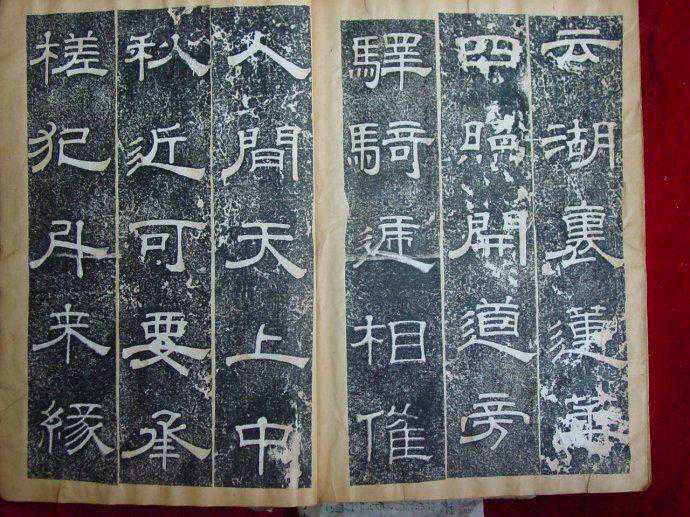 云湖裏蓮華
四照開道旁
驛騎遞相催
人間天上中
秋近可要承
槎犯斗来緣